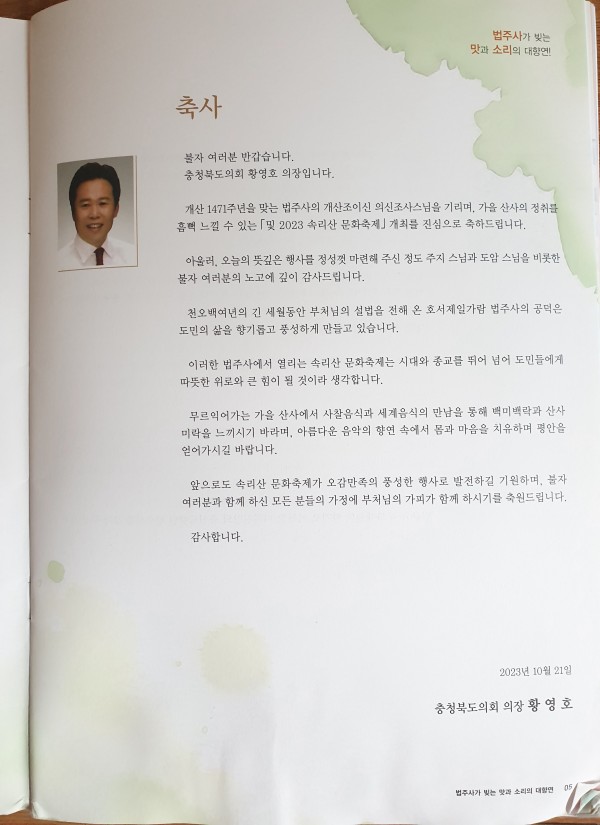 법주사가 빚는
맛과 소리의 대향연!
축사
불자 여러분 반갑습니다.
충청북도의회 황영호 의장입니다.
개산 1471주년을 맞는 법주사의 개산조이신 의신조사스님을 기리며, 가을 산사의 정취를
흠뻑 느낄 수 있는 「및 2023 속리산 문화축제」 개최를 진심으로 축하드립니다.
아울러, 오늘의 뜻깊은 행사를 정성껏 마련해 주신 정도 주지 스님과 도암 스님을 비롯한
불자 여러분의 노고에 깊이 감사드립니다.
천오백여년의 긴 세월동안 부처님의 설법을 전해 온 호서제일가람 법주사의 공덕은
도민의 삶을 향기롭고 풍성하게 만들고 있습니다.
이러한 법주사에서 열리는 속리산 문화축제는 시대와 종교를 뛰어 넘어 도민들에게
따뜻한 위로와 큰 힘이 될 것이라 생각합니다.
무르익어가는 가을 산사에서 사찰음식과 세계음식의 만남을 통해 백미백락과 산사
미락을 느끼시기 바라며, 아름다운 음악의 향연 속에서 몸과 마음을 치유하며 평안을
얻어가시길 바랍니다.
앞으로도 속리산 문화축제가 오감만족의 풍성한 행사로 발전하길 기원하며, 불자
여러분과 함께 하신 모든 분들의 가정에 부처님의 가피가 함께 하시기를 축원드립니다.
감사합니다.
2023년 10월 21일
충청북도의회 의장 황 영 호
법주사가 빚는 맛과 소리의 대향연 05